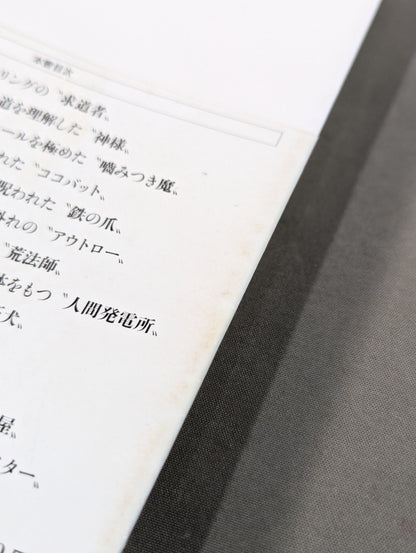 本書目次
リングの〝求道者〟
道を理解した〝神様〟
ールを極めた〝嚙みつき魔〟
れた〝ココバット〟
呪われた〝鉄の爪〟
外れの〝アウトロー〟
〝荒法師〟
体をもつ〝人間発電所〟
犬〟
屋〟
スター〟